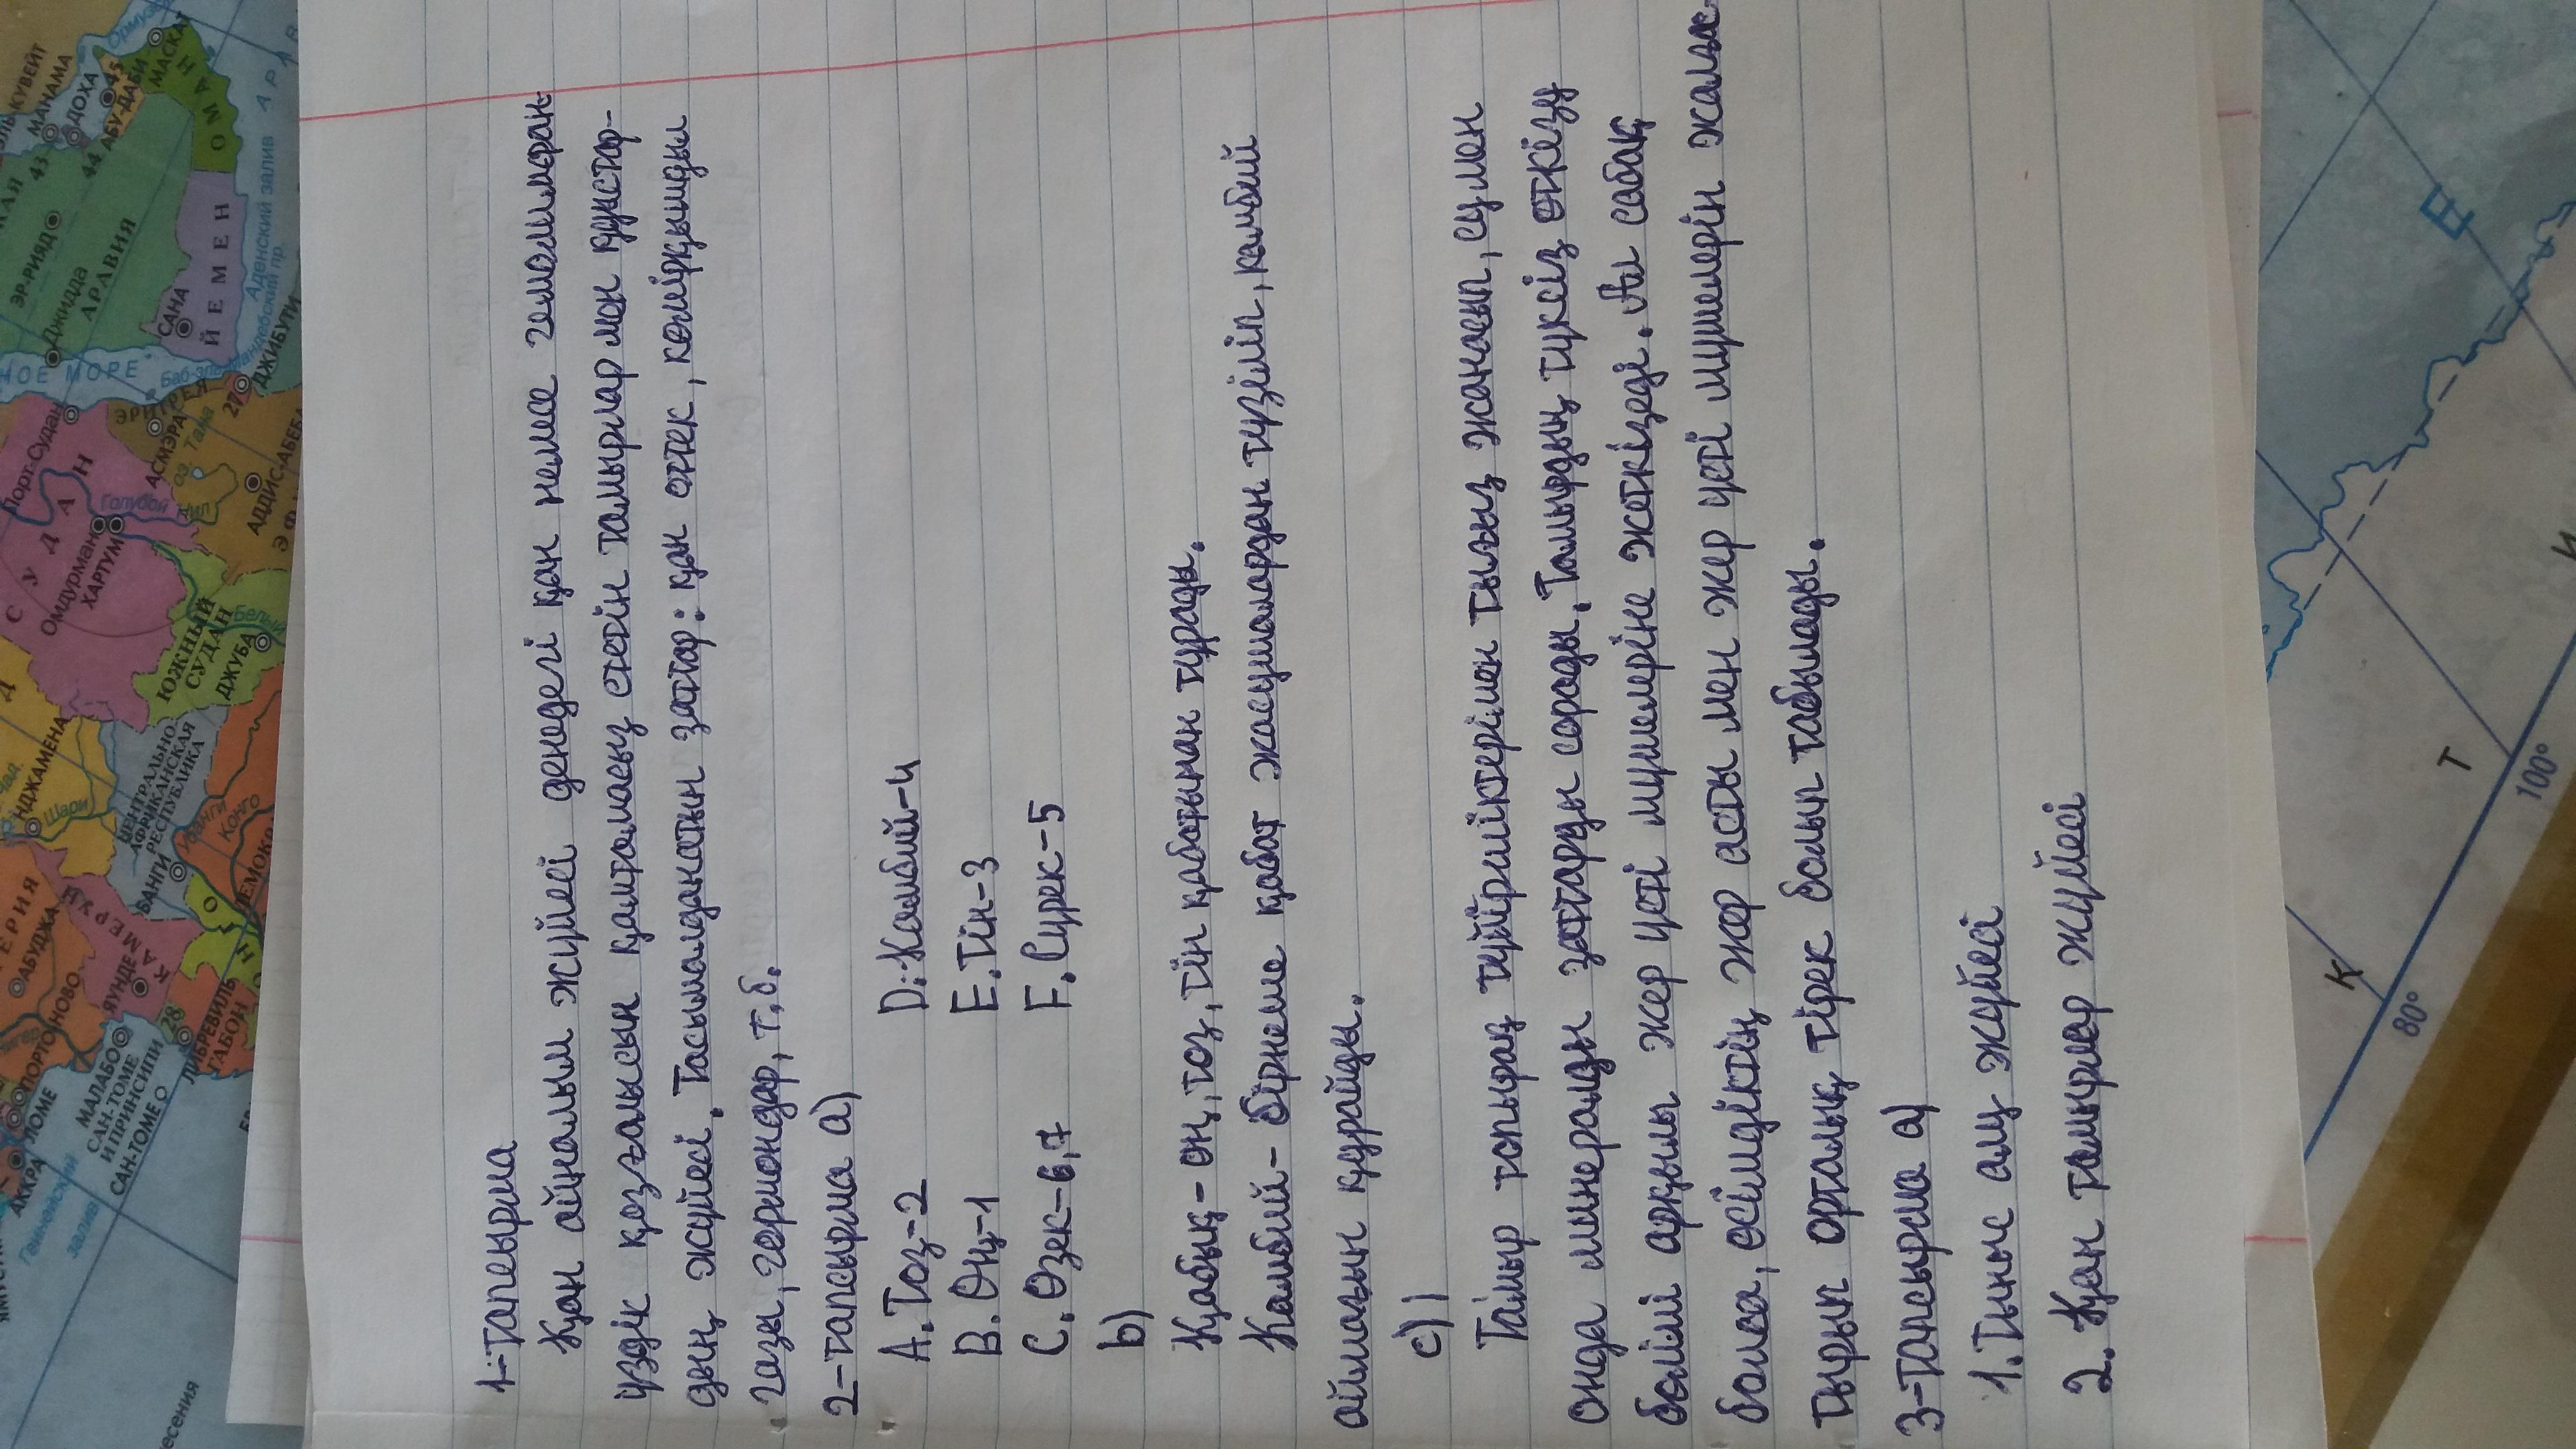 1-Тапсырма
Қан айналым жүйесі денедегі қан немесе гемолимфан
үздік қозғалысын қамтамасыз ететін тамырлар мен қуыстар-
дың жүйесі. Тасымалданатын заттар: қан оттек, көмірқышқыл
газы, гормондар, т.б.
2-тапсырма а)
А. Тоз-2 D. Камбий-4
В. Өң-1 Е. Тін-3
С. Өзек-6,7 F. Сүрек-5
b)
Қабық- өң, тоз, тін қабатынан тұрады.
Камбий- бірнеше қабат жасушалардан түзіліп, камбий
аймағын құрайды.
c)1
Тамыр топырақ түйіршіктерімен тығыз жанасып, су мен
онда минералды заттарды сорады. Тамырдың түксіз өткізу
бөлімі арқылы жер үсті мүшелеріне жеткізеді. Ал сабақ
болса, өсімдіктің жер асты мен жер үсті мүшелерін жалғас-
тырып орталық тірек болып табылады.
3-тапсырма а)
1. Тыныс алу жүйесі
2. Қан тамырлар жүйесі
КУВЕЙТ
МАНАМА
ДОХА
АБУ-ДАБИ
МАСКАТ
ОМАН
ЭР-РИЯД
Джидда
АРАВИЯ
43
44
45
САНА
ЙЕМЕН
Аденский залив
ДЖИБУТИ
27
Порт-Судан
СУДАН
ОМДУРМАН
ХАРТУМ
Голубой Нил
АСМЭРА
оз. Тана
АДДИС-АБЕБА
ЮЖНЫЙ
СУДАН
ДЖУБА
НДЖАМЕНА
Шари
ЦЕНТРАЛЬНО-
АФРИКАНСКАЯ
РЕСПУБЛИКА
БАНГИ
Убанги
Конго
АБУДЖА
КАМЕРУН
ЯУНДЕ
МАЛАБО
САН-ТОМЕ
И ПРИНСИПИ
САН-ТОМЕ
28
ЛИБРЕВИЛЬ
ГАБОН
ПОРТО-НОВО
ЛОМЕ
АККРА
Гвинейский
залив
Е
Т
К
100°
80°